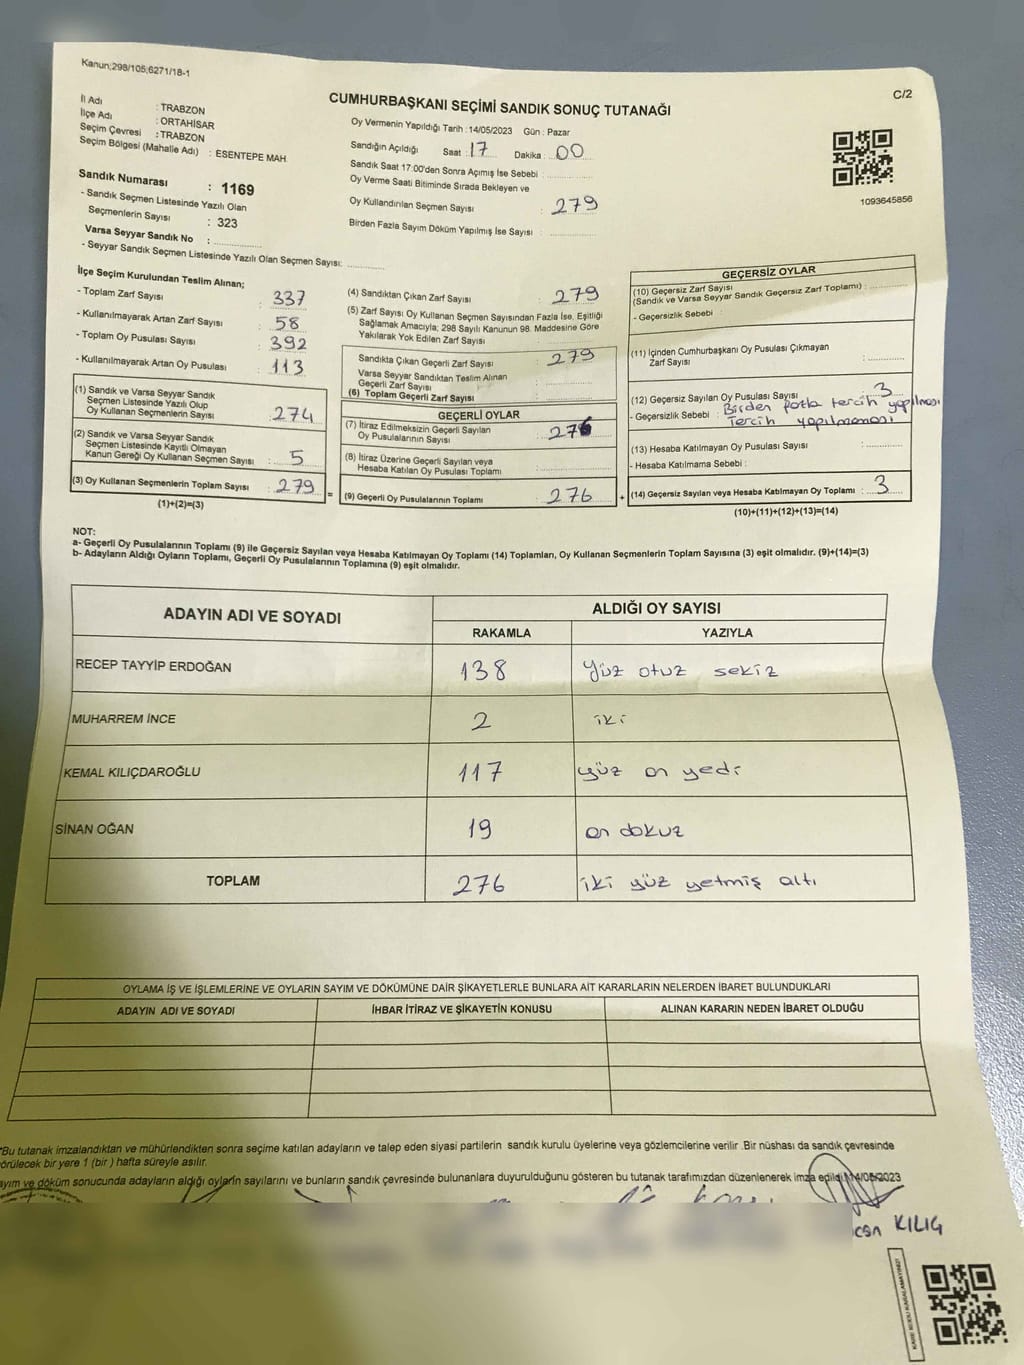 Kanun;298/105;6271/18-1
C/2
CUMHURBAŞKANI SEÇİMİ SANDIK SONUÇ TUTANAĞI
İl Adı : TRABZON
İlçe Adı : ORTAHİSAR
Seçim Çevresi : TRABZON
Seçim Bölgesi (Mahalle Adı) : ESENTEPE MAH
Sandık Numarası : 1169
- Sandık Seçmen Listesinde Yazılı Olan
Seçmenlerin Sayısı : 323
Varsa Seyyar Sandık No :
- Seyyar Sandık Seçmen Listesinde Yazılı Olan Seçmen Sayısı:
Oy Vermenin Yapıldığı Tarih :14/05/2023 Gün : Pazar
Sandığın Açıldığı Saat : 17 Dakika : 00
Sandık Saat 17:00'den Sonra Açılmış İse Sebebi :
Oy Verme Saati Bitiminde Sırada Bekleyen ve
Oy Kullandırılan Seçmen Sayısı : 279
Birden Fazla Sayım Döküm Yapılmış İse Sayısı :
1093645856
İlçe Seçim Kurulundan Teslim Alınan;
- Toplam Zarf Sayısı : 337
- Kullanılmayarak Artan Zarf Sayısı : 58
- Toplam Oy Pusulası Sayısı : 392
- Kullanılmayarak Artan Oy Pusulası : 113
(1) Sandık ve Varsa Seyyar Sandık
Seçmen Listesinde Yazılı Olup
Oy Kullanan Seçmenlerin Sayısı : 274
(2) Sandık ve Varsa Seyyar Sandık
Seçmen Listesinde Kayıtlı Olmayan
Kanun Gereği Oy Kullanan Seçmen Sayısı : 5
(3) Oy Kullanan Seçmenlerin Toplam Sayısı : 279
(1)+(2)=(3)
(4) Sandıktan Çıkan Zarf Sayısı : 279
(5) Zarf Sayısı Oy Kullanan Seçmen Sayısından Fazla İse, Eşitliği
Sağlamak Amacıyla; 298 Sayılı Kanunun 98. Maddesine Göre
Yakılarak Yok Edilen Zarf Sayısı :
Sandıkta Çıkan Geçerli Zarf Sayısı : 279
Varsa Seyyar Sandıktan Teslim Alınan
Geçerli Zarf Sayısı :
(6) Toplam Geçerli Zarf Sayısı :
GEÇERLİ OYLAR
(7) İtiraz Edilmeksizin Geçerli Sayılan
Oy Pusulalarının Sayısı : 276
(8) İtiraz Üzerine Geçerli Sayılan veya
Hesaba Katılan Oy Pusulası Toplamı :
= (9) Geçerli Oy Pusulalarının Toplamı : 276 +
GEÇERSİZ OYLAR
(10) Geçersiz Zarf Sayısı
(Sandık ve Varsa Seyyar Sandık Geçersiz Zarf Toplamı) :
- Geçersizlik Sebebi :
(11) İçinden Cumhurbaşkanı Oy Pusulası Çıkmayan
Zarf Sayısı :
(12) Geçersiz Sayılan Oy Pusulası Sayısı : 3
- Geçersizlik Sebebi : Birden fazla tercih yapılması
Tercih yapılmaması
(13) Hesaba Katılmayan Oy Pusulası Sayısı :
- Hesaba Katılmama Sebebi :
(14) Geçersiz Sayılan veya Hesaba Katılmayan Oy Toplamı : 3
(10)+(11)+(12)+(13)=(14)
NOT:
a- Geçerli Oy Pusulalarının Toplamı (9) ile Geçersiz Sayılan veya Hesaba Katılmayan Oy Toplamı (14) Toplamları, Oy Kullanan Seçmenlerin Toplam Sayısına (3) eşit olmalıdır. (9)+(14)=(3)
b- Adayların Aldığı Oyların Toplamı, Geçerli Oy Pusulalarının Toplamına (9) eşit olmalıdır.
ADAYIN ADI VE SOYADI ALDIĞI OY SAYISI
RAKAMLA YAZIYLA
RECEP TAYYİP ERDOĞAN 138 yüz otuz sekiz
MUHARREM İNCE 2 iki
KEMAL KILIÇDAROĞLU 117 yüz on yedi
SİNAN OĞAN 19 on dokuz
TOPLAM 276 iki yüz yetmiş altı
OYLAMA İŞ VE İŞLEMLERİNE VE OYLARIN SAYIM VE DÖKÜMÜNE DAİR ŞİKAYETLERLE BUNLARA AİT KARARLARIN NELERDEN İBARET BULUNDUKLARI
ADAYIN ADI VE SOYADI İHBAR İTİRAZ VE ŞİKAYETİN KONUSU ALINAN KARARIN NEDEN İBARET OLDUĞU
*Bu tutanak imzalandıktan ve mühürlendikten sonra seçime katılan adayların ve talep eden siyasi partilerin sandık kurulu üyelerine veya gözlemcilerine verilir .Bir nüshası da sandık çevresinde
örülecek bir yere 1 (bir ) hafta süreyle asılır.
ayım ve döküm sonucunda adayların aldığı oyların sayılarını ve bunların sandık çevresinde bulunanlara duyurulduğunu gösteren bu tutanak tarafımızdan düzenlenerek imza edildi.14/05/2023
KILIG
KARE KODU KARALAMAYINIZ!